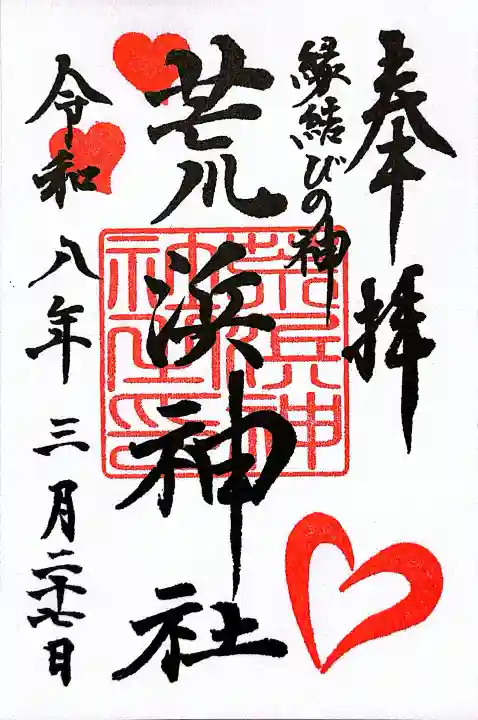 奉拝
縁結びの神
荒浜神社
令和八年三月二十七日